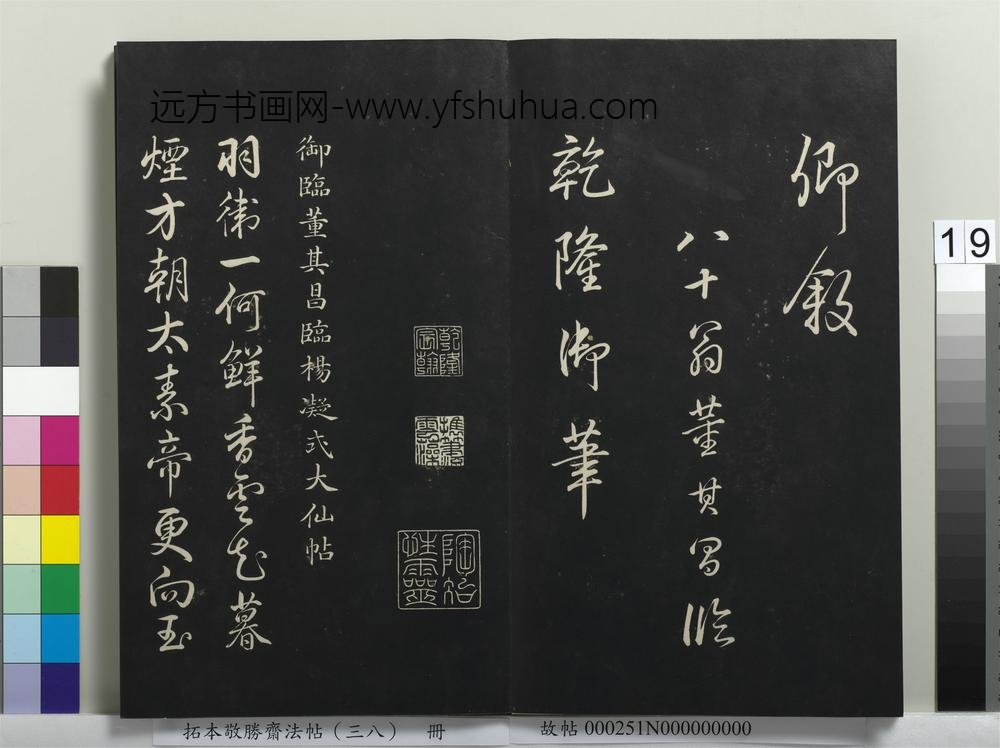 远方书画网-www.yfshuhua.com
卿敘
八十翁董其昌臨
乾隆御筆
乾隆宸翰
陶冶性靈
御臨董其昌臨楊凝式大仙帖
羽衛一何鮮香雲起暮
煙方朝太素帝更向玉
19
拓本敬勝齋法帖（三八） 冊
故帖 000251N000000000